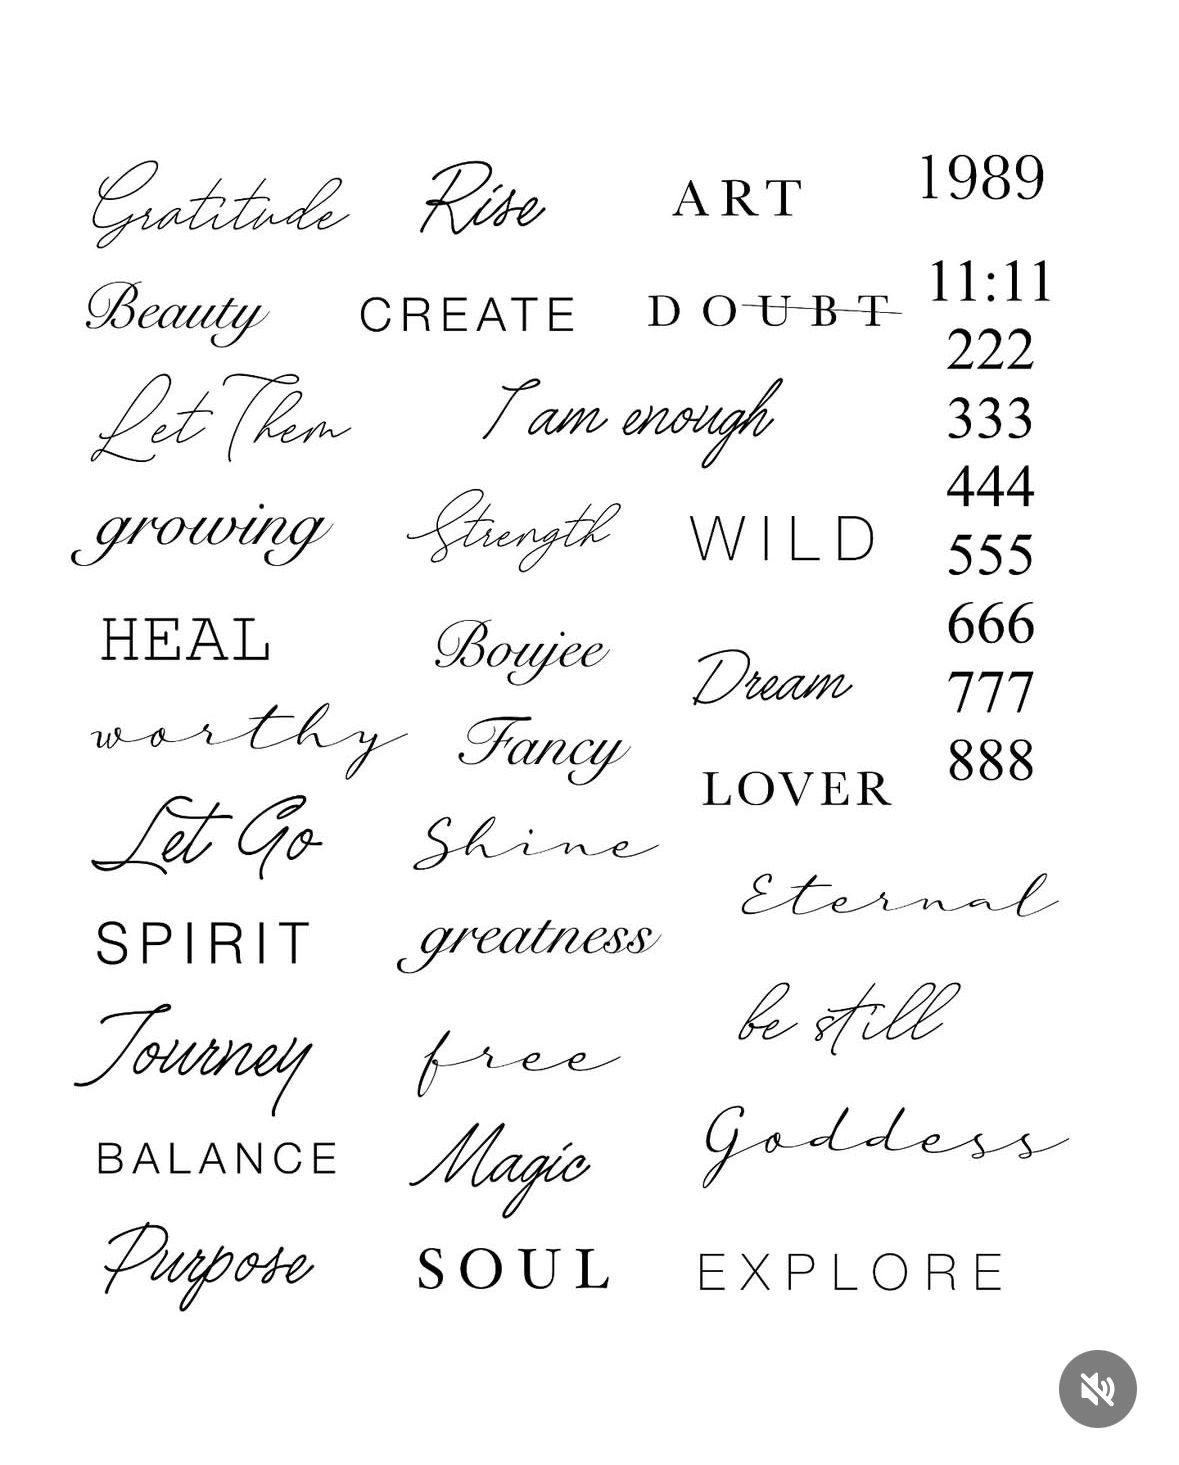 Gratitude
Rise
ART
1989
Beauty
CREATE
DOUBT
11:11
222
Let Them
I am enough
333
growing
Strength
WILD
444
555
HEAL
Boujee
Dream
666
777
worthy
Fancy
LOVER
888
Let Go
Shine
Eternal
SPIRIT
greatness
be still
Journey
free
Goddess
BALANCE
Magic
Purpose
SOUL
EXPLORE